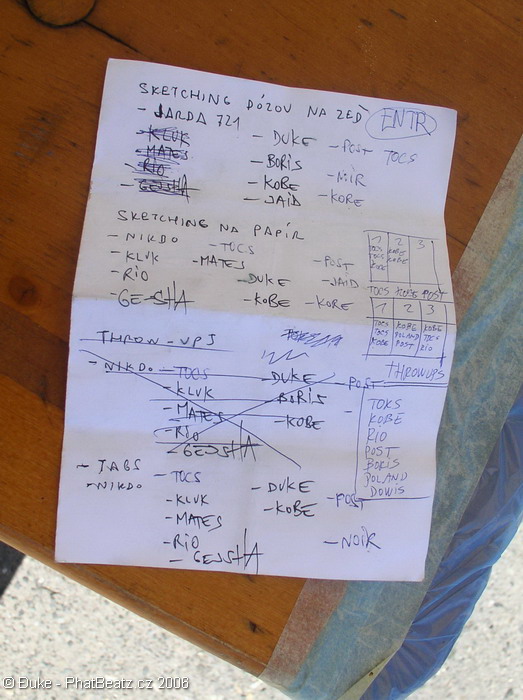 SKETCHING DÓZOV NA ZEĎ
ENTR
- JARDA 721
- KLUK
- MATES
- RIO
- GEJSHA
- DUKE
- BORIS
- KOBE
- JAID
- POST TOCS
- NOIR
- KORE
SKETCHING NA PAPÍR
- NIKDO
- KLUK
- RIO
- GEJSHA
- TOCS
- MATES
- DUKE
- KOBE
- POST
- JAID
- KORE
1 2 3
TOCS KOBE POST
1 2 3
TOCS KOBE KORE
TOCS POLAND TOCS
KOBE POST RIO
THROWUPS
TOKS
KOBE
RIO
POST
BORIS
POLAND
DOWIS
THROW-UPS
- NIKDO
- TOCS
- KLUK
- MATES
- RIO
GEJSHA
- DUKE
BORIS
- KOBE
- POST
- TAGS
- NIKDO
- TOCS
- KLUK
- MATES
- RIO
- GEJSHA
- DUKE
- KOBE
- POST
- NOIR
© Duke - PhatBeatz.cz 2008